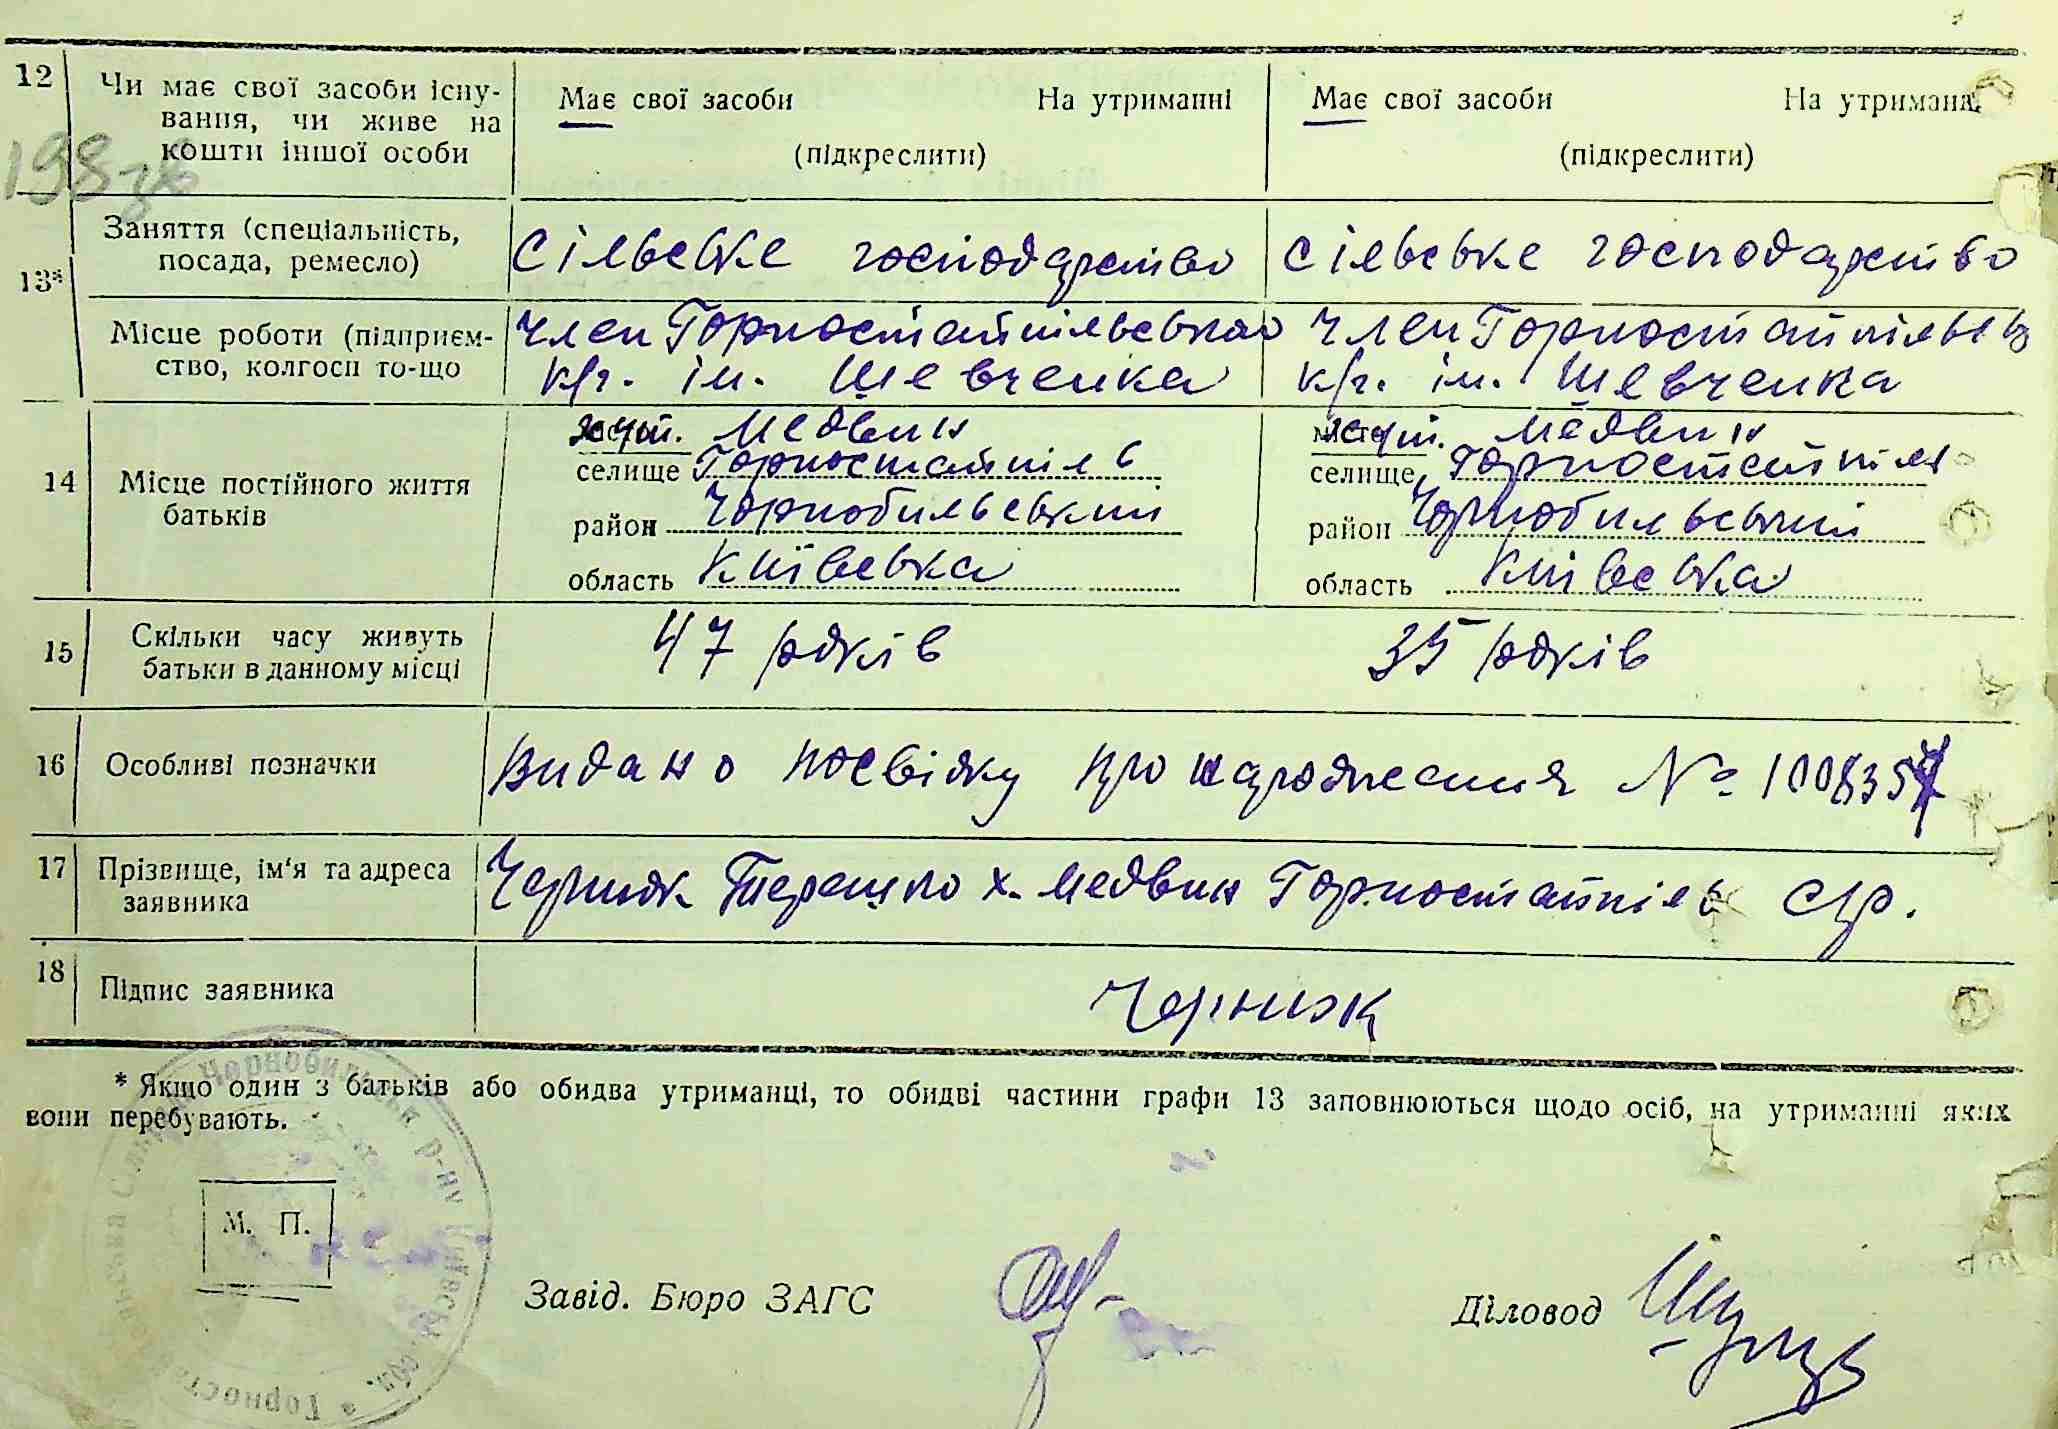 12 Чи має свої засоби існу-
вання, чи живе на
кошти іншої особи
Має свої засоби На утриманні
(підкреслити)
Має свої засоби На утриманн
(підкреслити)
198
13* Заняття (спеціальність,
посада, ремесло)
Сільське господарство
Сільське господарство
Місце роботи (підприєм-
ство, колгосп то-що
Член Горностайпільського
к/г. ім. Шевченка
Член Горностайпільськ
к/г. ім. Шевченка
14 Місце постійного життя
батьків
хут. Медвин
селище Горностайпіль
район Чорнобильський
область Київська
хут. Медвин
селище Горностайпіль
район Чорнобильський
область Київська
15 Скільки часу живуть
батьки в данному місці
47 років
35 років
16 Особливі позначки
Видано посвідку про народження № 1008357
17 Прізвище, ім'я та адреса
заявника
Черниж х. Медвин Горностайпіль с/р.
18 Підпис заявника
Черниж
* Якщо один з батьків або обидва утриманці, то обидві частини графи 13 заповнюються щодо осіб, на утриманні яких
вони перебувають.
М. П.
Завід. Бюро ЗАГС
Діловод